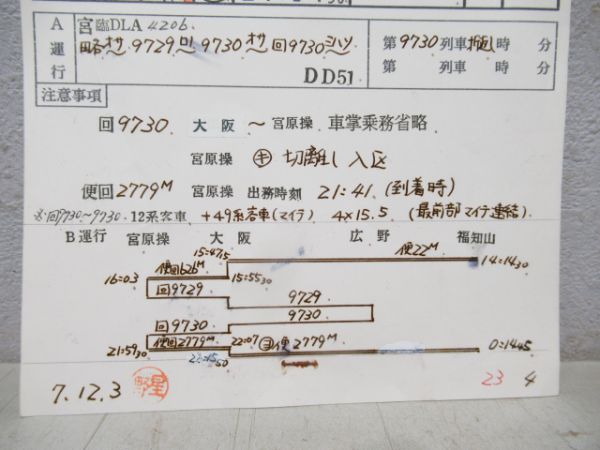 A 宮臨DLA 4206
運 9729 9730 オサ 回9730 ミハソ 第9730列車 時 分
行 DD51 第 列車 時 分
注意事項
回9730 大阪 〜 宮原操 車掌乗務省略
宮原操 ㋖ 切離し入区
便回2779M 宮原操 出務時刻 21:41 (到着時)
回9730〜9730. 12系客車 +49系客車(マイテ) 4×15.5 (最前部マイテ連結)
B 運行 宮原操 大阪 広野 福知山
15:47 15 便22M 14:14 30
便回626M
16:03 15:55 30
回9729 9729
9730
回9730
便回2779M 22:07 便2779M 0:14 45
21:59 30 50
7.12.3 野星 23 4